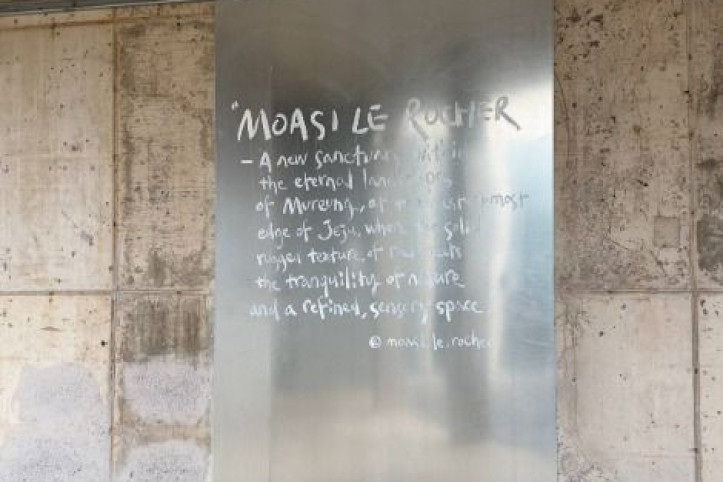 "MOASI LE ROCHER
- A new sanctuary within
the eternal landscapes
of Mureung, at the
edge of Jeju, where the solid
rugged texture of
the tranquility of nature
and a refined, sensory space
@moasi.le.rocher